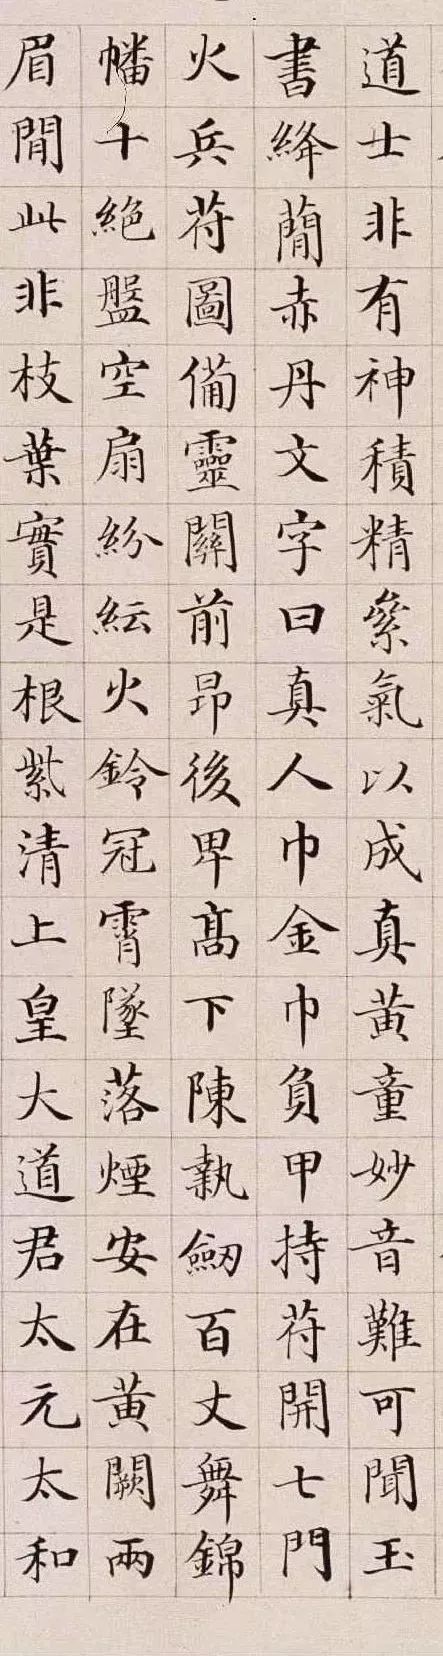 道士非有神積精絫氣以成真黄童妙音難可聞玉
書絳蕳赤丹文字曰真人巾金巾負甲持苻開七門
火兵苻圖備靈關前昂後卑髙下陳執劔百丈舞錦
幡十絶盤空扇紛紜火鈴冠霄墜落煙安在黄闕兩
眉閒此非枝葉實是根紫清上皇大道君太元太和